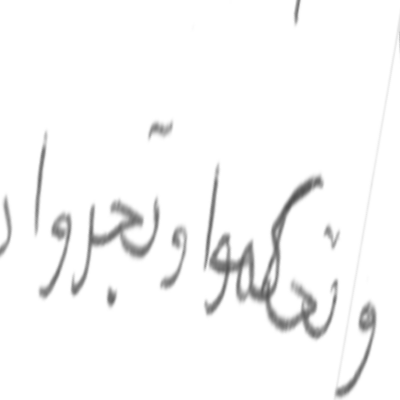 وتحكموا وتجروا